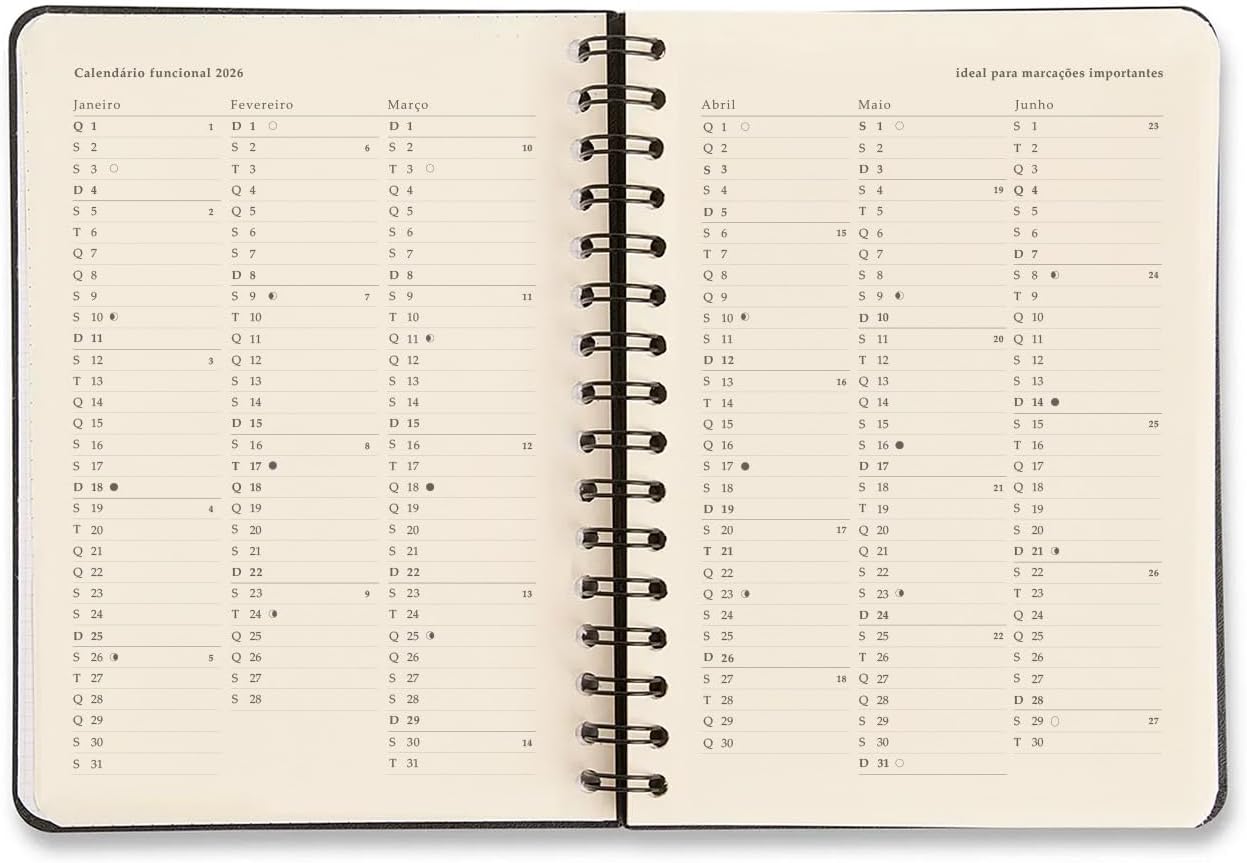 Calendário funcional 2026
Janeiro
Q 1 1
S 2
S 3
D 4
S 5 2
T 6
Q 7
Q 8
S 9
S 10
D 11
S 12 3
T 13
Q 14
Q 15
S 16
S 17
D 18
S 19 4
T 20
Q 21
Q 22
S 23
S 24
D 25
S 26 5
T 27
Q 28
Q 29
S 30
S 31
Fevereiro
D 1
S 2 6
T 3
Q 4
Q 5
S 6
S 7
D 8
S 9 7
T 10
Q 11
Q 12
S 13
S 14
D 15
S 16 8
T 17
Q 18
Q 19
S 20
S 21
D 22
S 23 9
T 24
Q 25
Q 26
S 27
S 28
Março
D 1
S 2 10
T 3
Q 4
Q 5
S 6
S 7
D 8
S 9 11
T 10
Q 11
Q 12
S 13
S 14
D 15
S 16 12
T 17
Q 18
Q 19
S 20
S 21
D 22
S 23 13
T 24
Q 25
Q 26
S 27
S 28
D 29
S 30 14
T 31
ideal para marcações importantes
Abril
Q 1
Q 2
S 3
S 4
D 5
S 6 15
T 7
Q 8
Q 9
S 10
S 11
D 12
S 13 16
T 14
Q 15
Q 16
S 17
S 18
D 19
S 20 17
T 21
Q 22
Q 23
S 24
S 25
D 26
S 27 18
T 28
Q 29
Q 30
Maio
S 1
S 2
D 3
S 4 19
T 5
Q 6
Q 7
S 8
S 9
D 10
S 11 20
T 12
Q 13
Q 14
S 15
S 16
D 17
S 18 21
T 19
Q 20
Q 21
S 22
S 23
D 24
S 25 22
T 26
Q 27
Q 28
S 29
S 30
D 31
Junho
S 1 23
T 2
Q 3
Q 4
S 5
S 6
D 7
S 8 24
T 9
Q 10
Q 11
S 12
S 13
D 14
S 15 25
T 16
Q 17
Q 18
S 19
S 20
D 21
S 22 26
T 23
Q 24
Q 25
S 26
S 27
D 28
S 29 27
T 30